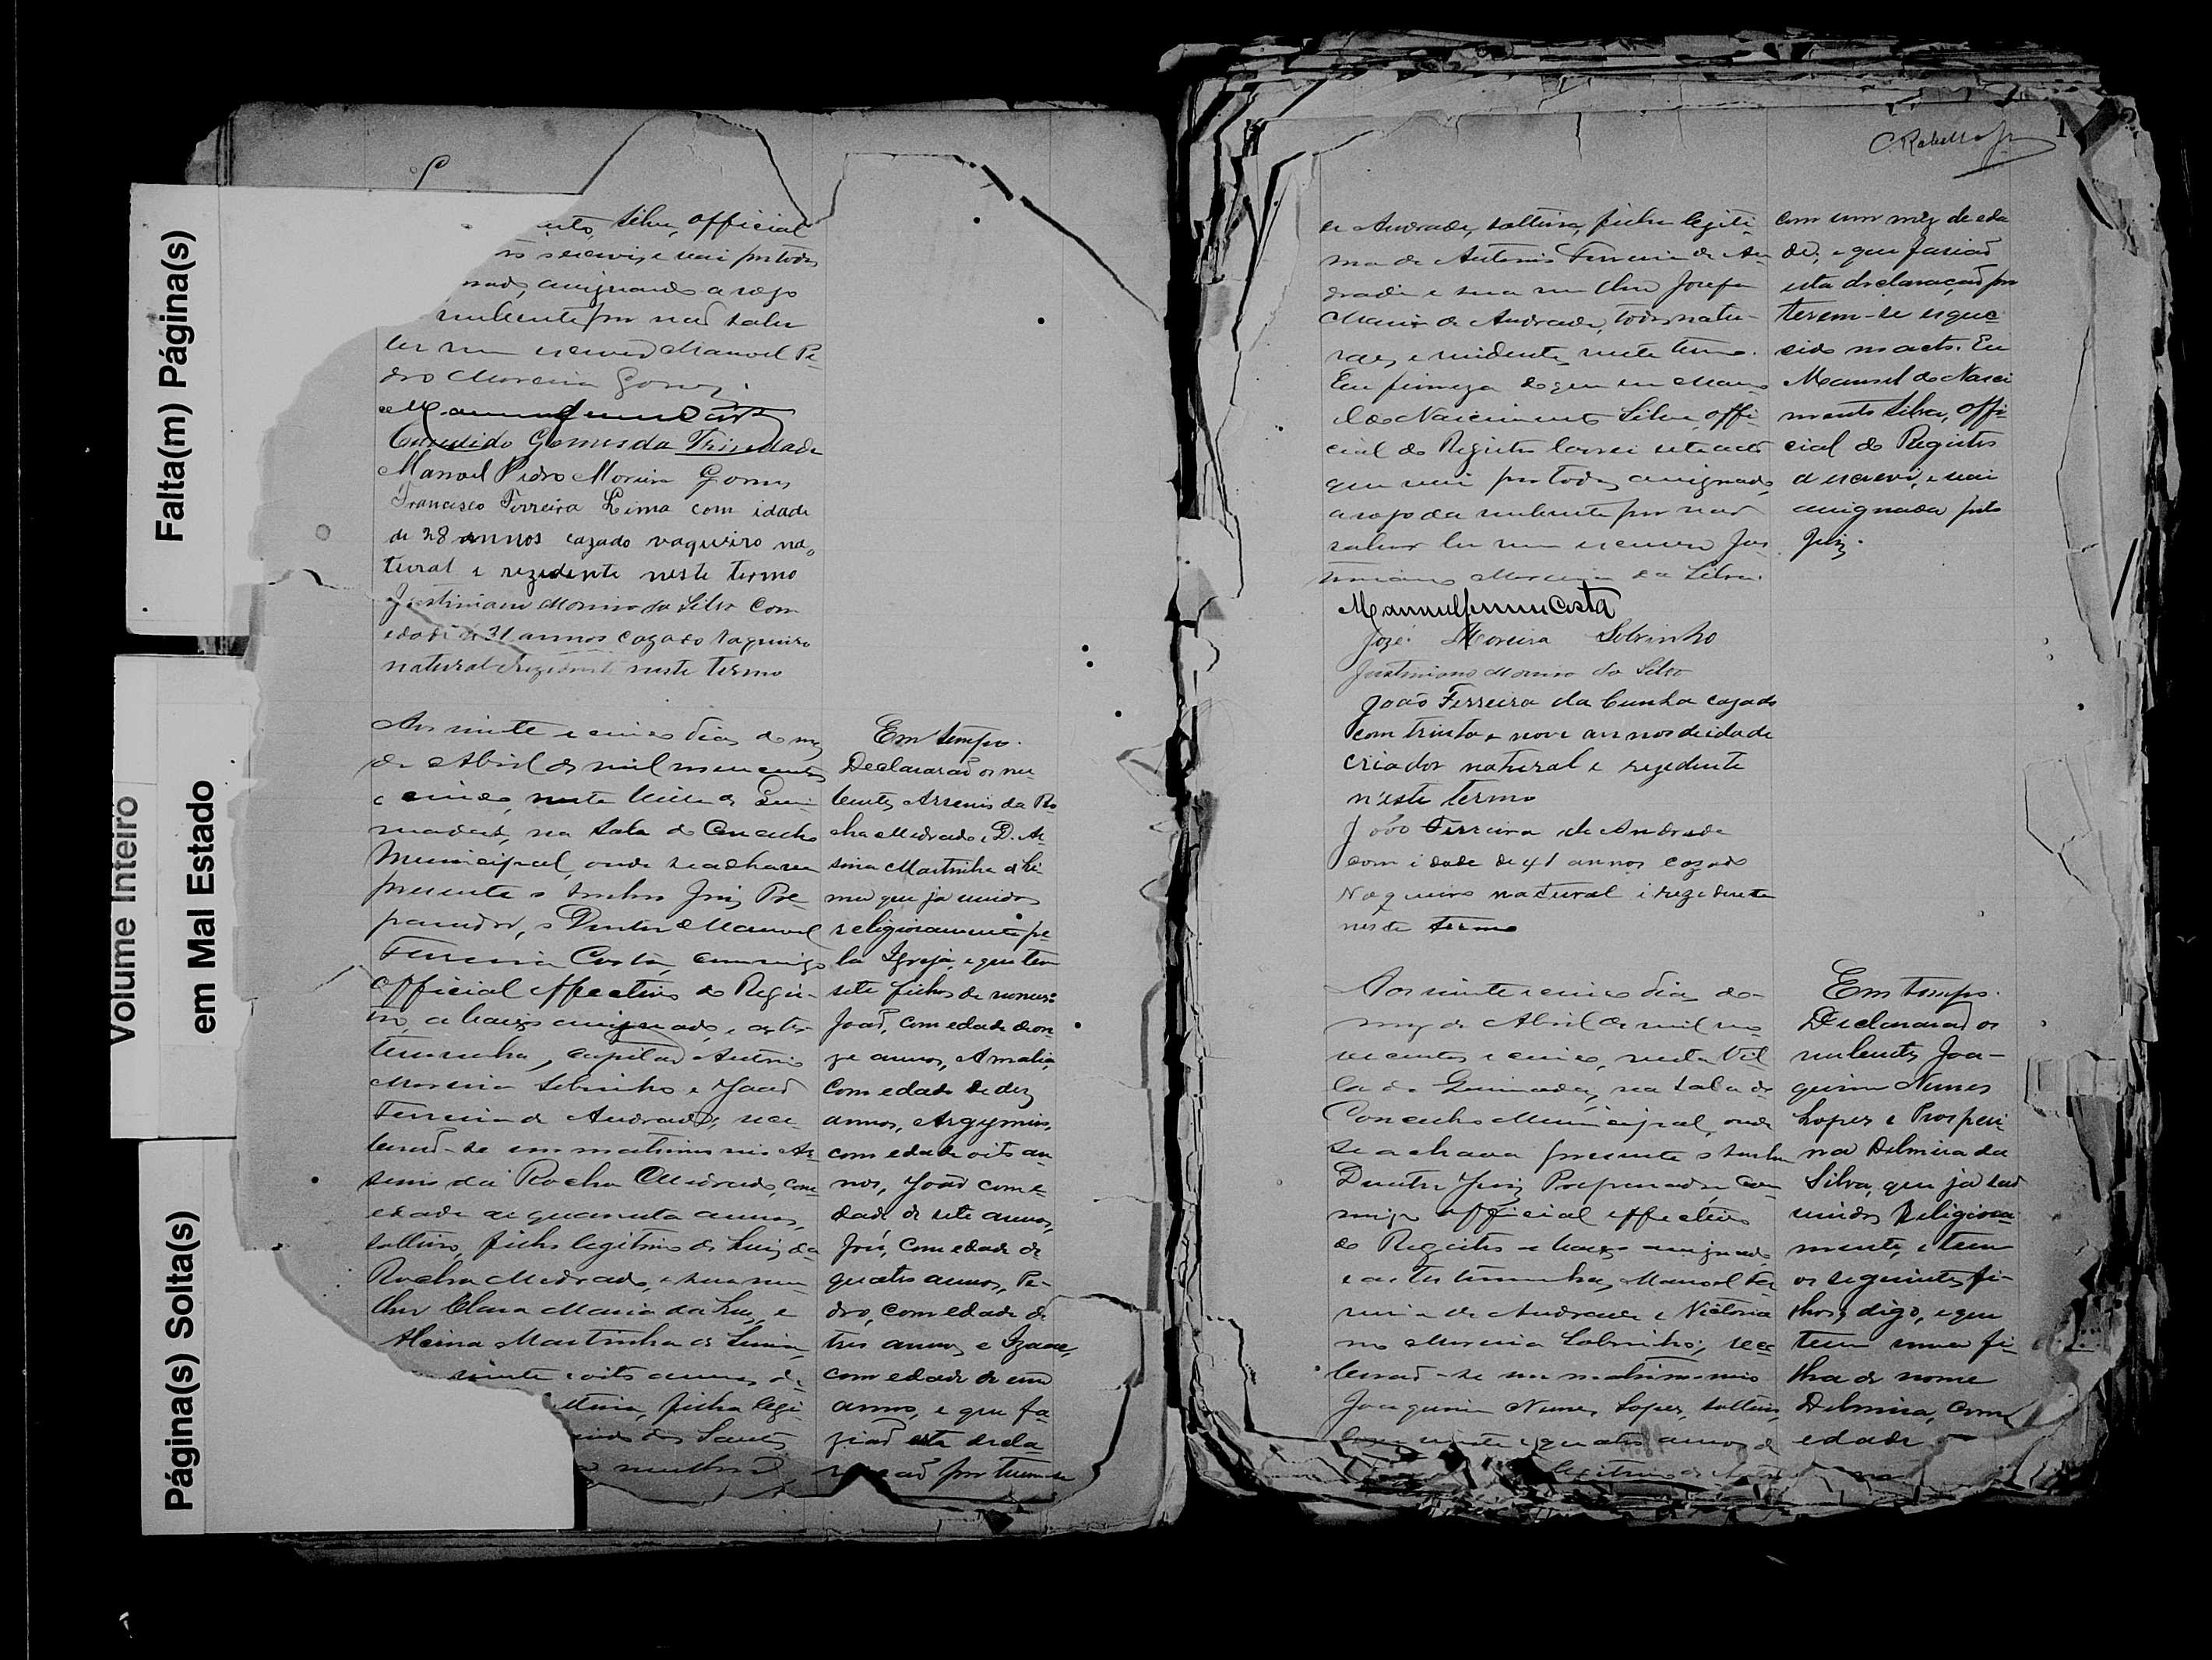 Falta(m) Página(s)
Volume Inteiro
em Mal Estado
Página(s) Solta(s)
Silva, official
escrevi, e vai por todos
assignando a rogo
nubente por não saber
ler nem escrever Manoel Pe-
dro Moreira Gomes.
Candido Gomes da Trindade
Manoel Pedro Moreira Gomes
Francisco Ferreira Lima com idade
de 28 annos cazado vaqueiro na
tural e rezidente neste termo
Justiniano Moreira da Silva com
edade de 31 annos cazado vaqueiro
natural e rezidente neste termo
Aos vinte e cinco dias do mez
de Abril de mil novecentos
e cinco, nesta Villa de Quei-
madas, na sala do Concelho
Municipal, onde se achava
presente o Senhor Juiz Pre-
parador, o Doutor Manoel
Ferreira Costa, commigo
official effectivo do Regis-
tro, abaixo assignado, e as tes-
temunhas, capitão Antonio
Moreira Sobrinho e João
Ferreira de Andrade, rece-
berão-se em matrimonio Ar-
senio da Rocha Medrado, com
edade de quarenta annos,
solteiro, filho legitimo de Luiz da
Rocha Medrado, e sua mu-
lher Clara Maria da Luz, e
Martinha de Lima,
vinte e oito annos de
filha legi-
dos Santos
mulher
Em tempo.
Declararão os nu-
bentes Arsenio da Ro
cha Medrado e D. Al
sina Martinha de Li-
ma que já unidos
religiosamente pe-
la Igreja, e que tem
sete filhos de nomes:
João, com edade de on
ze annos, Amalia,
com edade de dez
annos, Argymiro,
com edade oito an
nos, João com e-
dade de sete annos,
José, com edade de
quatro annos, Pe-
dro, com edade de
tres annos e Izaac,
com edade de um
anno, e que fa-
zião esta decla
ração por terem se
C. Rabello Jr
de Andrade, solteira, filha legiti-
ma de Antonio Ferreira de An-
drade e sua mulher Josefa
Maria de Andrade, todos natu-
raes e residentes neste termo.
Em firmeza do que eu Mano
el do Nascimento Silva, offi-
cial do Registro lavrei este acto
que vai por todos assignado,
a rogo da nubente por não
saber ler nem escrever Jus
tiniano Moreira da Silva.
Manuel Ferreira Costa
José Moreira Sobrinho
Justiniano Moreira da Silva
João Ferreira da Cunha cazado
com trinta e nove annos de idade
criador natural e rezedente
n'este termo
João Ferreira de Andrade
com idade de 41 annos cazado
Vaqueiro natural e rezedente
neste termo
com um mez de eda
de; e que fazião
esta declaração por
terem-se esque
cido no acto. Eu
Manoel do Nasci
mento Silva, offi
cial do Registro
a escrevi, e vai
assignada pelo
Juiz.
Aos vinte e cinco dias do
mez de Abril de mil no
vecentos e cinco, nesta Vil
la de Queimadas, na sala do
Concelho Municipal, onde
se achava presente o Senhor
Doutor Juiz Preparador com
migo official effectivo
do Registro abaixo assignado
e as testemunhas, Manoel Fer
reira de Andrade e Victoria
no Moreira Sobrinho; rece
berão-se em matrimonio
Joaquim Nunes Lopes, solteiro,
com vinte e quatro annos de
legitimo de
Em tempo.
Declararão os
nubentes Joa-
quim Nunes
Lopes e Prosperi
na Delmira da
Silva, que já são
unidos Religiosa
mente, e tem
os seguintes fi-
lhos, digo, e que
tem uma fi-
lha de nome
Delmira, com
edade